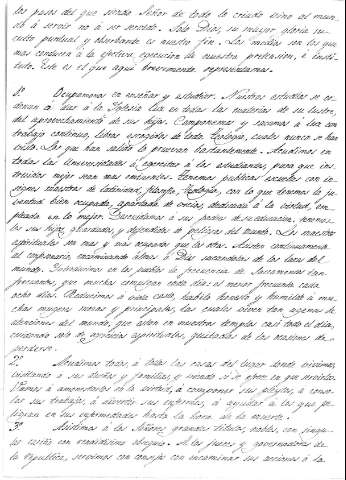 los pasos del que siendo Señor de todo lo criado vino al mun-
do á servir no á ser servido. Solo Dios, su mayor gloria, su
culto puntual y observante es nuestro fin. Los medios son los que
mas conducen á la efectiva execucion de nuestra pretension, é Insti-
tuto. Este es el que aquí brevemente representamos.
1º Ocupamonos en enseñar y estudiar. Nuestros estudios se or-
denan á dar á la Iglesia luz en todas las materias de su lustre,
del aprovechamiento de sus hijos. Componemos y sacamos á luz con
trabajo continuo, libros escogidos de toda Teología, cuales nunca se han
visto. Los que han salido lo prueban bastantemente. Acudimos en
todas las Universidades á exercitar á los estudiantes, para que ins-
truidos mejor sean mas . Tenemos publicas escuelas con in-
signes maestros de latinidad, filosofia, Teología, con lo que tenemos la ju-
ventud bien ocupada, apartada de vicios, dedicada á la virtud, em-
pleada en lo mejor. á sus padres de su educacion, tenemos-
les sus hijos guardados, y defendidos de peligros del mundo. Los maestros
espirituales son mas y mas que los otros. continuamente
al confesonario encaminando almas á Dios sacandolas de los lazos del
mundo. en los pueblos la frecuencia de Sacramentos tan
frecuente, que muchos comulgan cada dia: el menos frecuente cada
ocho dias. Reducimos á vida casta, habito honesto y humilde á mu-
chas mugeres mozas y principales, las cuales viven tan agenas de
atenciones del mundo, que estan en nuestros templos casi todo el dia,
cuidando solo de exercicios espirituales, quitadas de las ocasiones de
perderse.
2º Acudimos todos á todas las casas del lugar donde vivimos,
visitando á sus dueños y familias y viendo si se ofrece en que servirlos.
Vamos á amonestarlos en la virtud, á componer sus pleytos, á conso-
lar sus trabajos, á divertir sus enfermos, á ayudar á los que pe-
ligran en sus enfermedades hasta la hora de la muerte.
3º Asistimos á los Señores grandes titulos, nobles, con singu-
lar cuidado con obsequio. A los jueces y governadores de
la republica, servimos con consejo con encaminar sus acciones á la